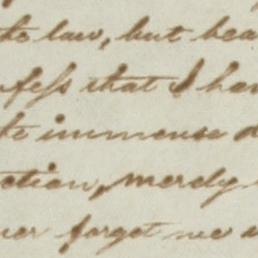 the law, but bea
nfess that I hav
the immense d
ction, merely
ver forget me a